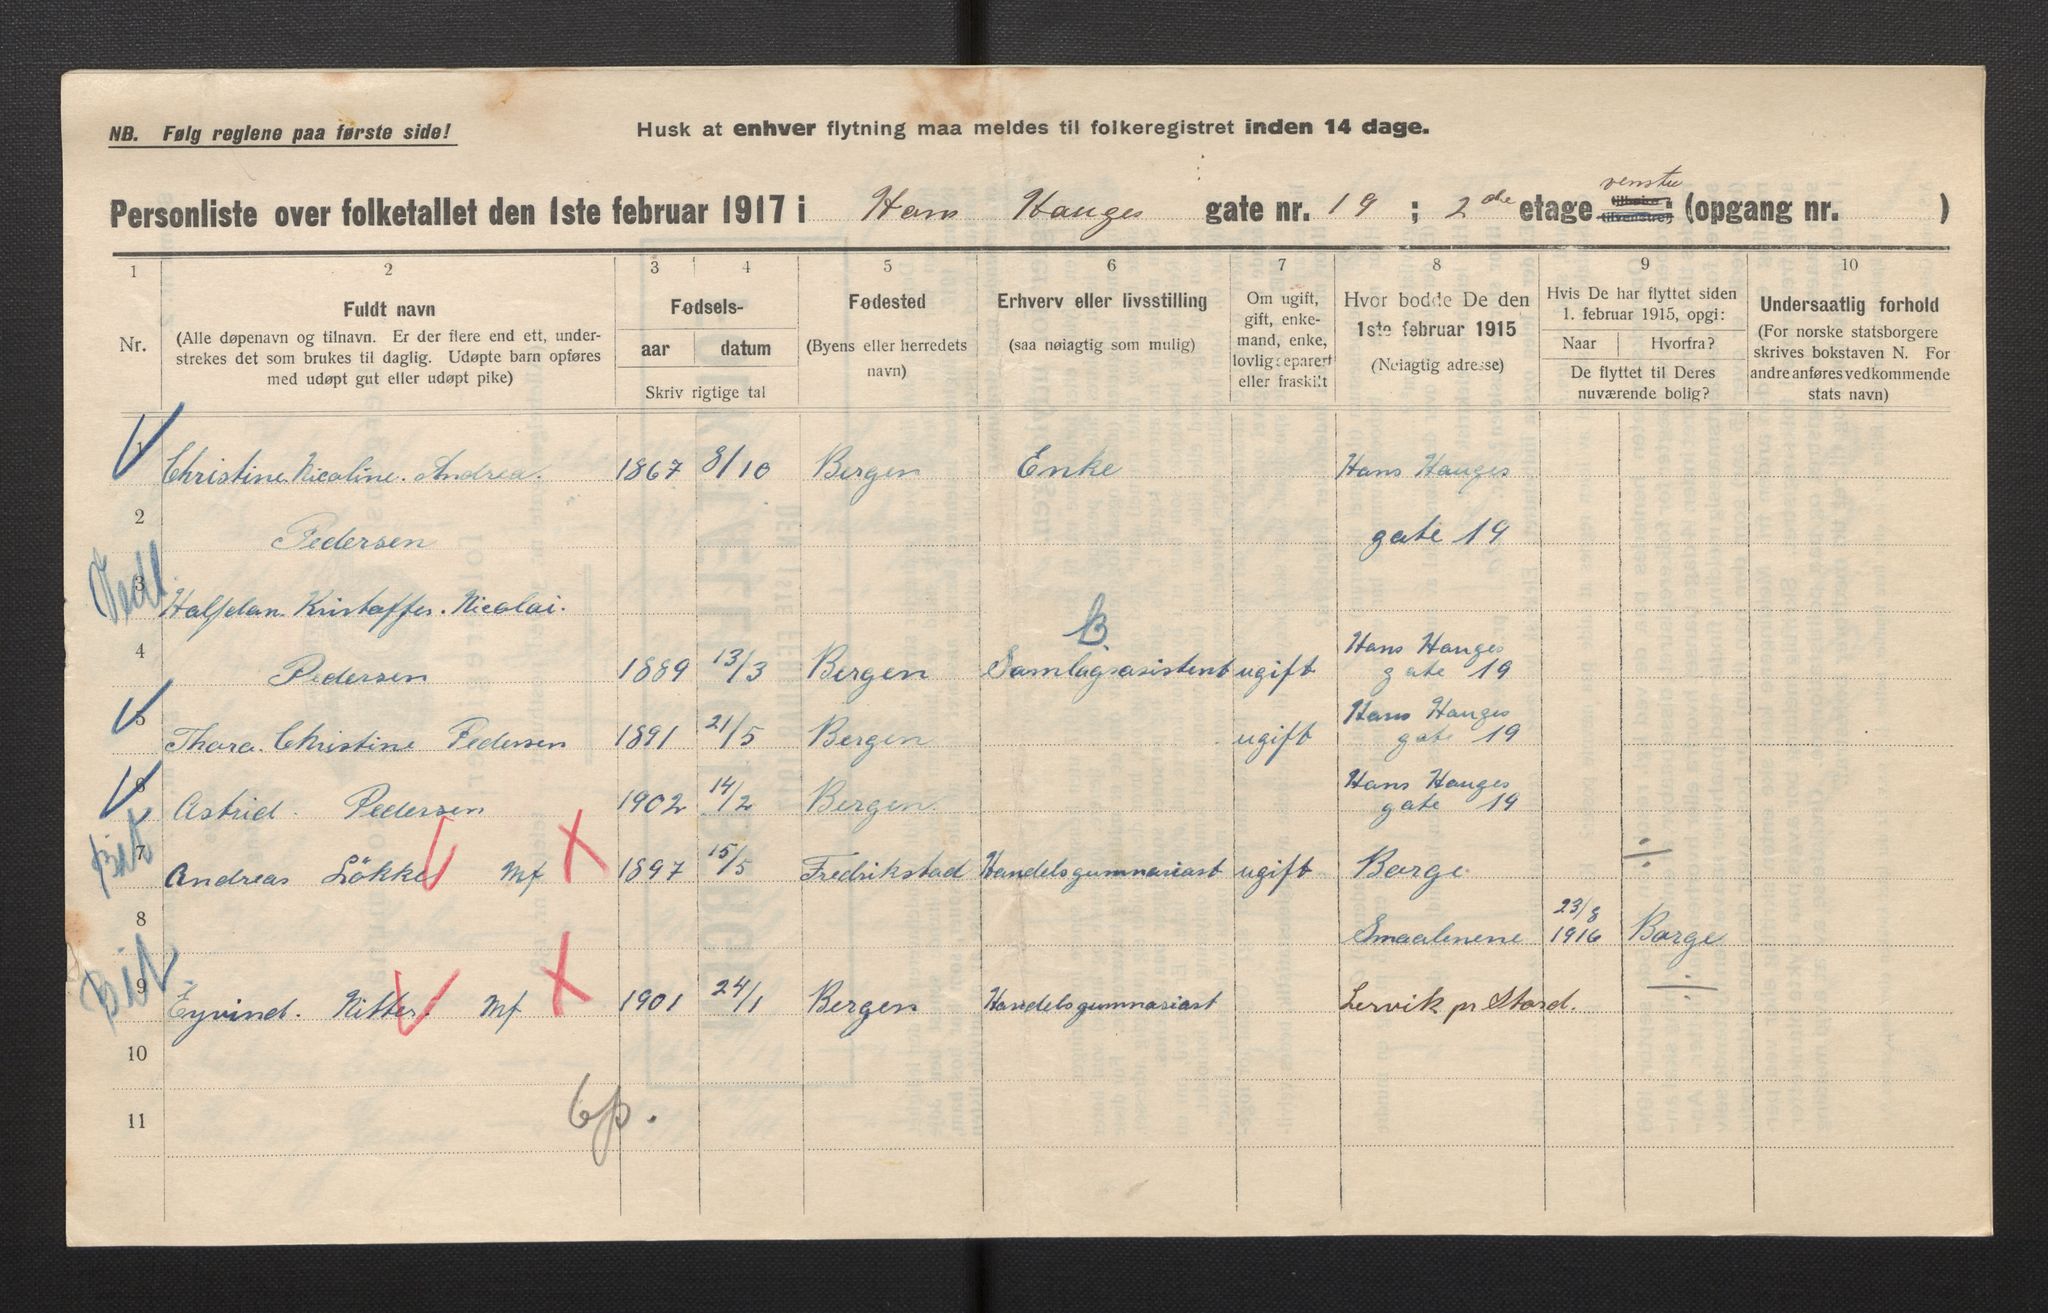 NB. Følg reglene paa første side!
Husk at enhver flytning maa meldes til folkeregistret inden 14 dage.
venstre
Personliste over folketallet den 1ste februar 1917 i Hans Hauges gate nr. 19 ; 2de etage (opgang nr. )
tilvenstre
1 2 3 4 5 6 7 8 9 10
Nr.
Fuldt navn
(Alle døpenavn og tilnavn. Er der flere end ett, under-
strekes det som brukes til daglig. Udøpte barn opføres
med udøpt gut eller udøpt pike)
Fødsels-
aar datum
Skriv rigtige tal
Fødested
(Byens eller herredets
navn)
Erhverv eller livsstilling
(saa nøiagtig som mulig)
Om ugift,
gift, enke-
mand, enke,
lovlig separert
eller fraskilt
Hvor bodde De den
1ste februar 1915
(Nøiagtig adresse)
Hvis De har flyttet siden
1. februar 1915, opgi:
Naar Hvorfra?
De flyttet til Deres
nuværende bolig?
Undersaatlig forhold
(For norske statsborgere
skrives bokstaven N. For
andre anføres vedkommende
stats navn)
1 Christine Nicoline. Andrea. 1867 8/10 Bergen Enke Hans Hauges
2 Pedersen gate 19
3 Halfdan Kristoffer. Nicolai.
B.
4 Pedersen 1889 13/3 Bergen Samlagsasistent ugift Hans Hauges
gate 19
5 Thora Christine Pedersen 1891 21/5 Bergen ugift Hans Hauges
gate 19
6 Astrid. Pedersen 1902 14/2 Bergen. Hans Hauges
gate 19
7 Andreas Lökke Mf X 1897 15/5 Fredrikstad Handelsgymnasiast ugift Borge. ÷
8 Smaalenene 23/8 1916 Borge
9 Eyvind. Ritter. Mf X 1901 24/1 Bergen Handelsgymnasiast Lervik pr Stord. ÷
10
11
6p.